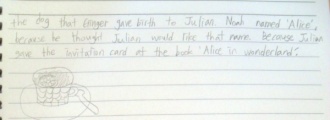 the dog that Ginger gave birth to Julian. Noah named 'Alice',
because he thought Julian would like that name. Because Julian
gave the invitation card at the book 'Alice in wonderland'.